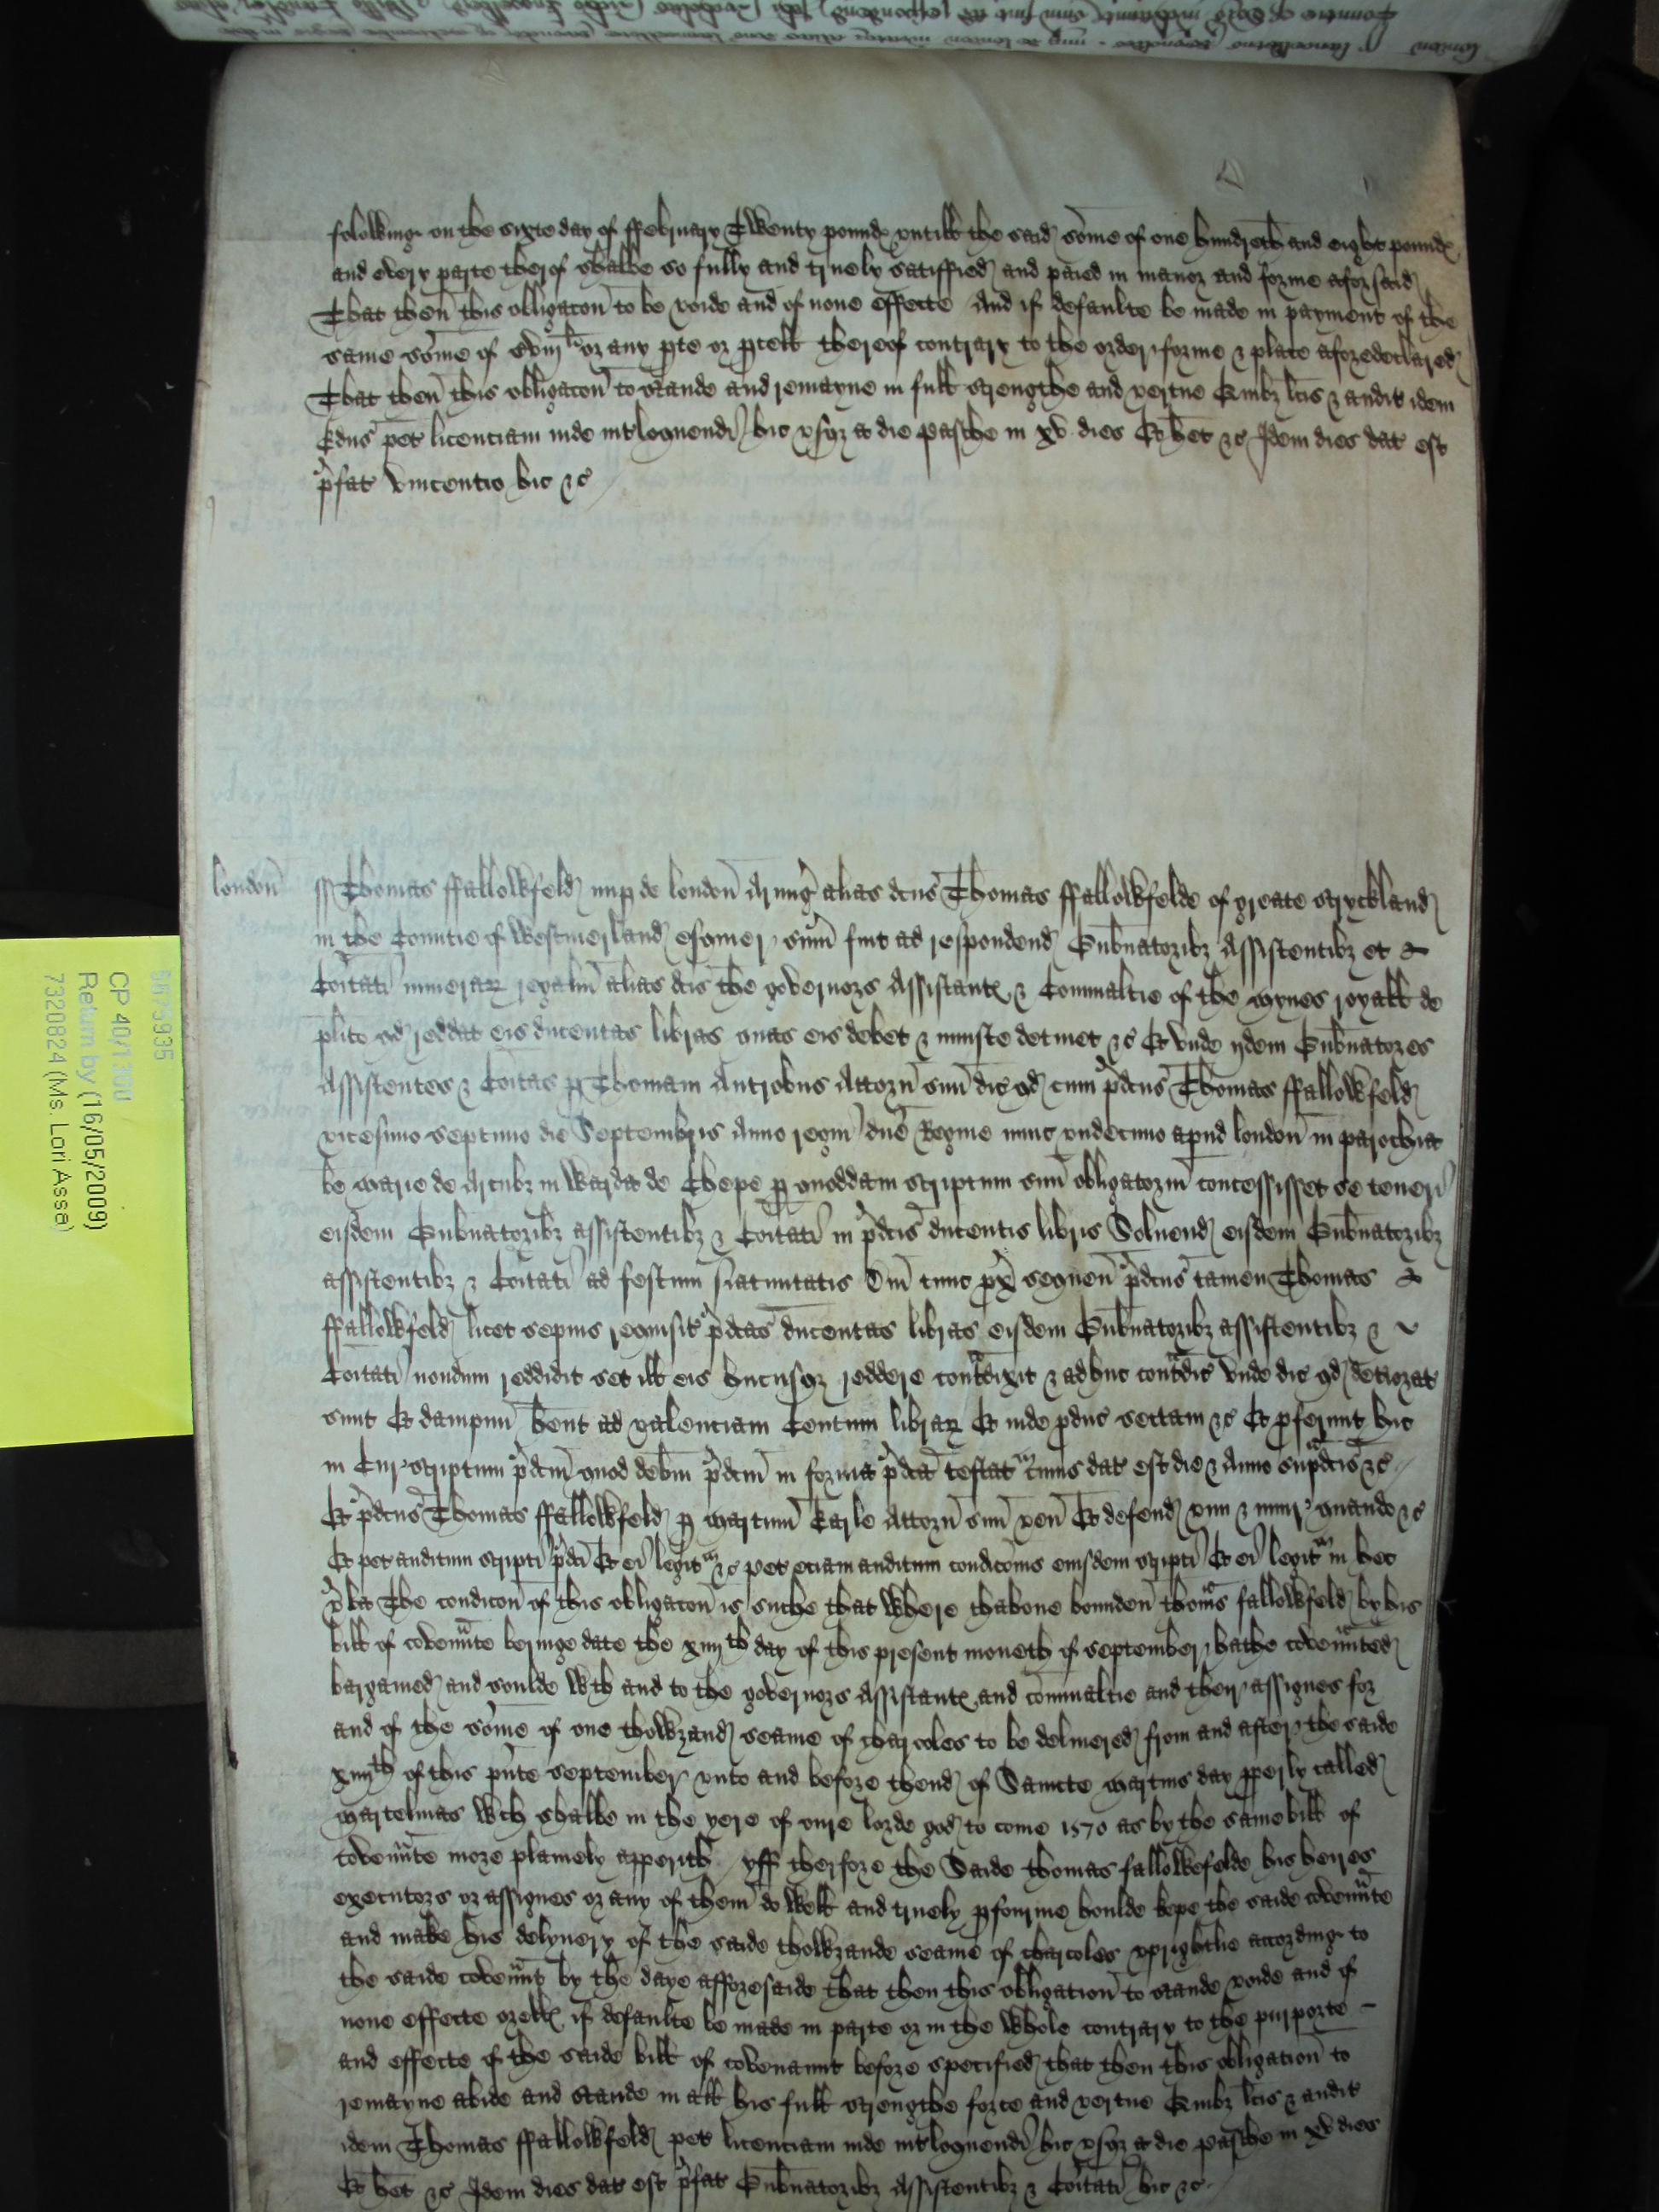 folowing on the sixte day of ffebruary Twenty pound untill the said some of one hundreth and eight pound
and every parte therof shalbe so fully and truely satisfied and paied in maner and forme aforsaid
That then this obligacon to be voide and of none effecte And if defaulte be made in payment of the
same some of cviijli or any pte or pcell thereof contrary to the order forme & place aforedeclared
That then this obligacon to stande and remayne in full strengthe and vertue Quibz lcis & audit idem
Edus pet licenciam inde intloquendi hic usqz a die pasche in xv dies Et het &c Idem dies dat est
pfat Vincentio hic &c
london ss Thomas ffallowfeld nup de london Armig alias dcus Thomas ffallowfelde of greate stryckland
in the Countie of westmerland esquier sum fuit ad respondend Gubnatoribz Assistentibz et
Coitati minerar regaliu alias dcis the governors Assistant & Comnaltie of the mynes royall de
plito qd reddat eis ducentas libras quas eis debet & iniuste detinet &c Et unde ijdem Gubnatores
Assistentes & Coitas p Thomam Antrobus Attorn suu dic qd cum pdcus Thomas ffallowfeld
vicesimo septimo die Septembris Anno regni dne Regine nunc undecimo apud london in parochia
be marie de Arcubz in warda de Chepe p quoddam scriptum suu obligatoriu concessisset se teneri
eisdem Gubnatoribz assistentibz & Coitati in pdcis ducentis libris Solvend eisdem Gubnatoribz
assistentibz & Coitati ad festum Nativitatis Dni tunc px sequen pdcus tamen Thomas
ffallowfeld licet sepius requisit pdcas ducentas libras eisdem Gubnatoribz assistentibz &
Coitati nondum reddidit set ill eis hucusqz reddere contdixit & adhuc contdic unde dic qd detiorat
sunt Et dampnu hent ad valenciam Centum librar Et inde pduc sectam &c Et pferunt hic
in Cur scriptum pdcm quod debm pdcm in forma pdca testat cuius dat est die & Anno supdcis &c
Et pdcus Thomas ffallowfeld p martinu Earle Attorn suu ven Et defend vim & iniur quando &c
Et pet auditum scripti pdci Et ei legit &c pet etiam auditum condicois eiusdem scripti Et ei legit in hec
vba The condicon of this obligacon is suche that where thabone bounden thoms fallowfeld by his
bill of covennte beringe date the xiiijth day of this present moneth of september hathe covennted
bargained and soulde wth and to the governors Assistant and comnaltie and their assignes for
and of the some of one thowzand seame of charcoles to be delivered from and after the saide
xiiijth of this pnte september unto and before thend of Saincte martins day pperly called
martelmas wch shalbe in the yere of oure lorde god to come 1570 as by the same bill of
covennte more plainely apperith yff therfore the Saide thomas fallowefelde his heires
executors or assignes or any of them do well and truely pfourme houlde kepe the saide covennte
and make his delyvery of the saide thowzande seame of charcoles uprightlie according to
the saide covennt by the daye afforesaide that then this obligation to stande voide and of
none effecte orells if defaulte be made in parte or in the whole contrary to the purporte
and effecte of the saide bill of covenaunt before specified that then this obligation to
remayne abide and stande in all his full strengthe force and vertue Quibz lcis & audit
idem Thomas ffallowfeld pet licenciam inde intloquendi hic usqz a die pasche in xv dies
Et het &c Idem dies dat est pfat Gubnatoribz Assistentibz & Coitati hic &c
5675935
CP 40/1300
Return by (16/05/2009)
7320824 (Ms. Lori Asse)